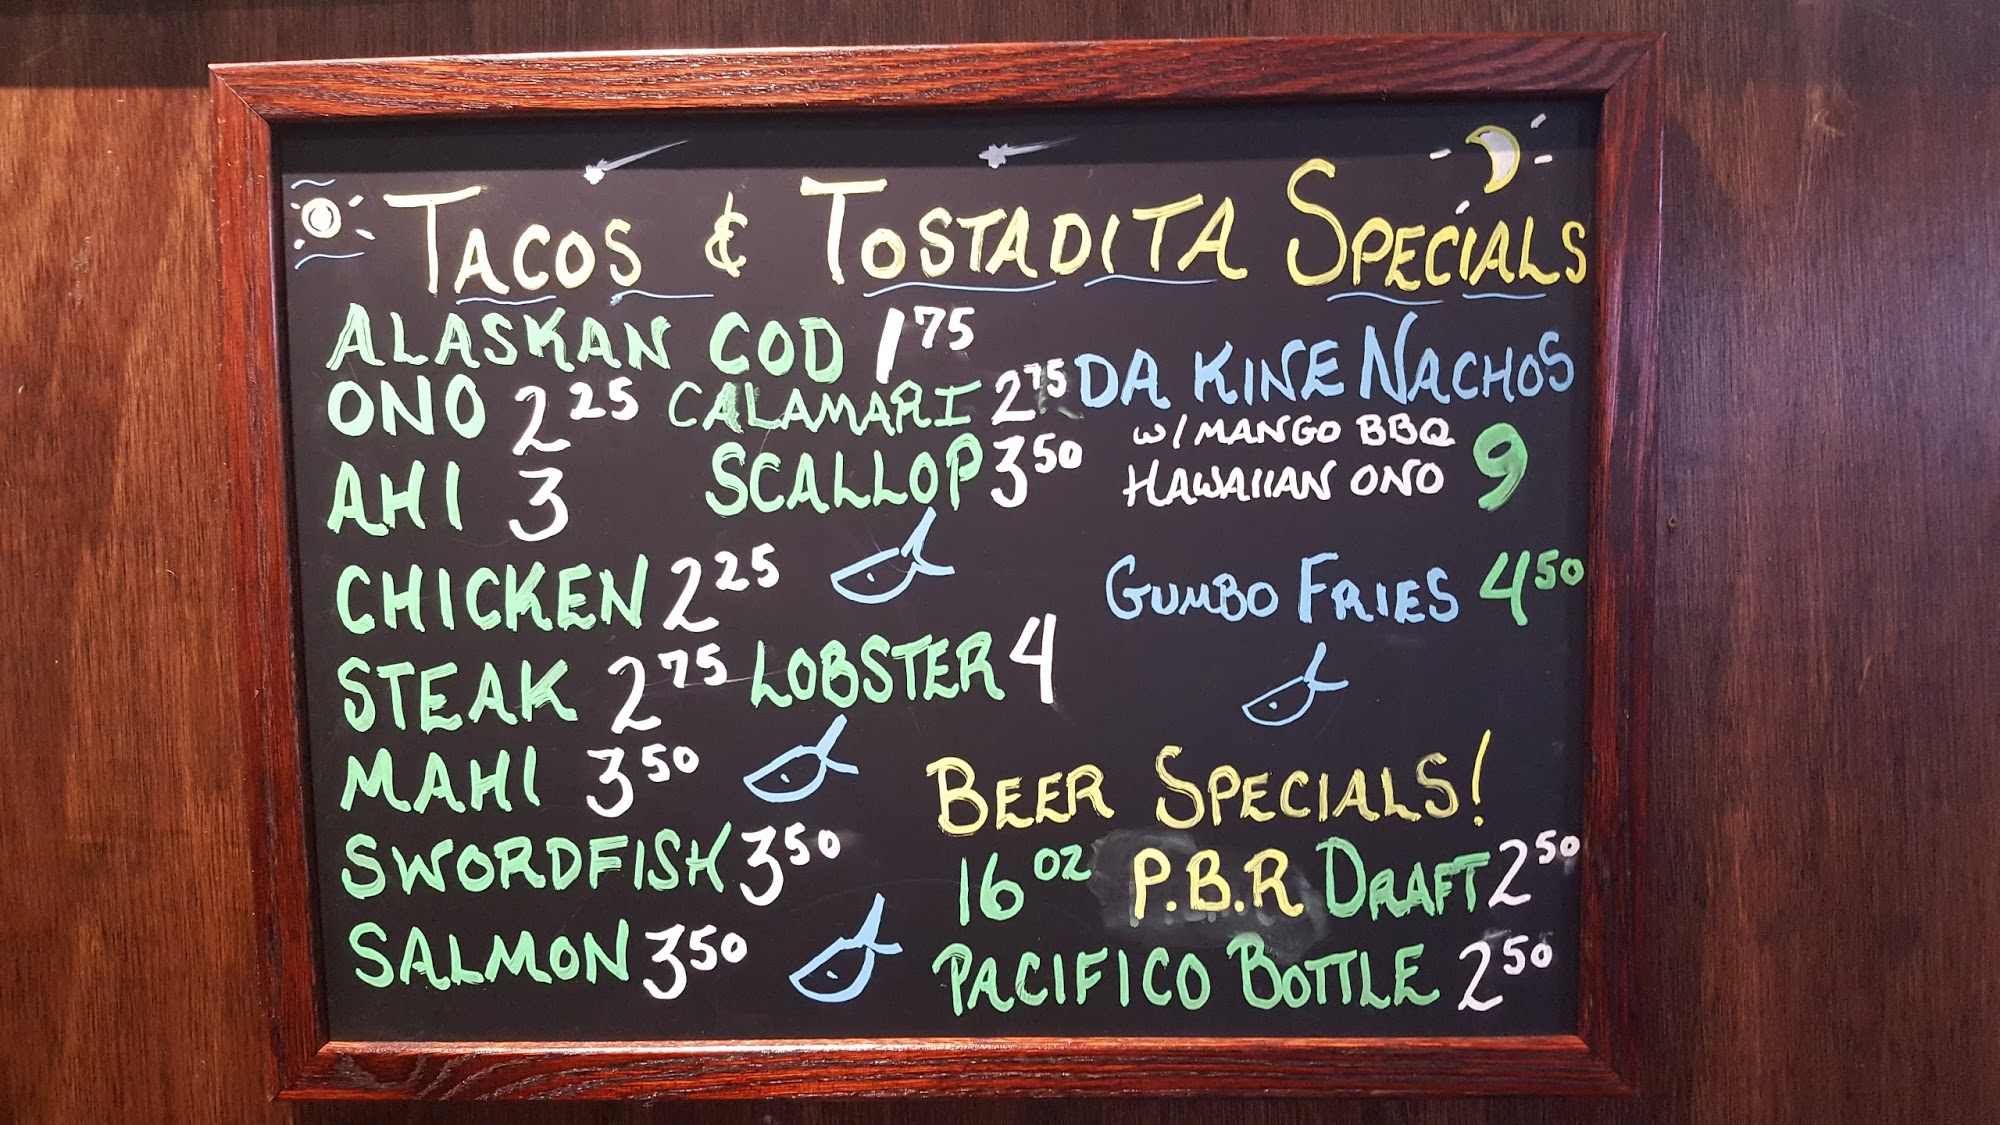 TACOS & TOSTADITA SPECIALS
ALASKAN COD 1 75
ONO 2 25 CALAMARI 2 75
AHI 3 SCALLOP 3 50
CHICKEN 2 25
STEAK 2 75 LOBSTER 4
MAHI 3 50
SWORDFISH 3 50
SALMON 3 50
DA KINE NACHOS
W/ MANGO BBQ
HAWAIIAN ONO 9
GUMBO FRIES 4 50
BEER SPECIALS!
16 OZ P.B.R DRAFT 2 50
PACIFICO BOTTLE 2 50